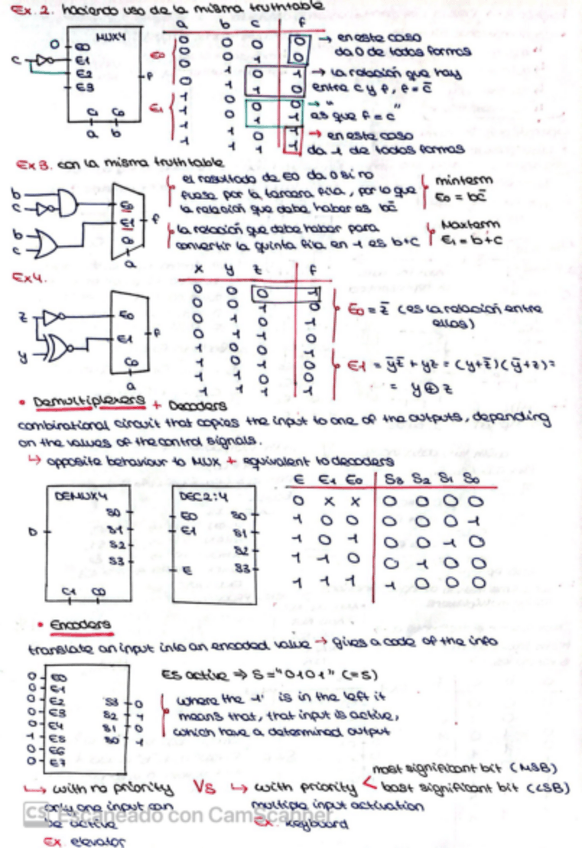 Ex. 2. haciendo uso de la misma truthtable
a b c f
MUX4
0 E0
c E1
E2
E3
f
C1 C0
a b
E0
E1
0 0 0 0
0 0 1 0
0 1 0 1
0 1 1 0
1 0 0 0
1 0 1 1
1 1 0 1
1 1 1 1
→ en este caso
da 0 de todas formas
→ la relación que hay
entre c y f, f = c̄
→ " "
es que f = c
→ en este caso
da 1 de todas formas
Ex 3. con la misma truthtable
b
c
b
c
E0
E1
f
a
el resultado de E0 da 0 si no
fuese por la tercera fila, por lo que
la relación que debe haber es bc̄
minterm
E0 = bc̄
la relación que debe haber para
convertir la quinta fila en 1 es b+c
Maxterm
E1 = b+c
Ex4.
x y z f
z
y
E0
E1
f
a
E0 = z̄ (es la relación entre
ellos)
E1 = ȳz̄ + yz = (y+z̄)(ȳ+z) =
= y ⊕ z
• Demultiplexers + Decoders
combinational circuit that copies the input to one of the outputs, depending
on the values of the control signals.
↳ opposite behaviour to MUX + equivalent to decoders
DEMUX4
D
S0
S1
S2
S3
C1 C0
DEC2:4
E0 S0
E1 S1
S2
E S3
E E1 E0 S3 S2 S1 S0
0 X X 0 0 0 0
1 0 0 0 0 0 1
1 0 1 0 0 1 0
1 1 0 0 1 0 0
1 1 1 1 0 0 0
• Encoders
translate an input into an encoded value → gives a code of the info
0 E0
0 E1
0 E2 S3 0
0 E3 S2 1
0 E4 S1 0
1 E5 S0 1
0 E6
0 E7
E5 active ⇒ S = "0101" (=5)
where the "1" is in the left it
means that, that input is active,
which have a determined output
↳ with no priority VS ↳ with priority
most significant bit (MSB)
least significant bit (LSB)
only one input can
be active
Ex. elevator
multiple input activation
Ex. keyboard
CS Escaneado con CamScanner